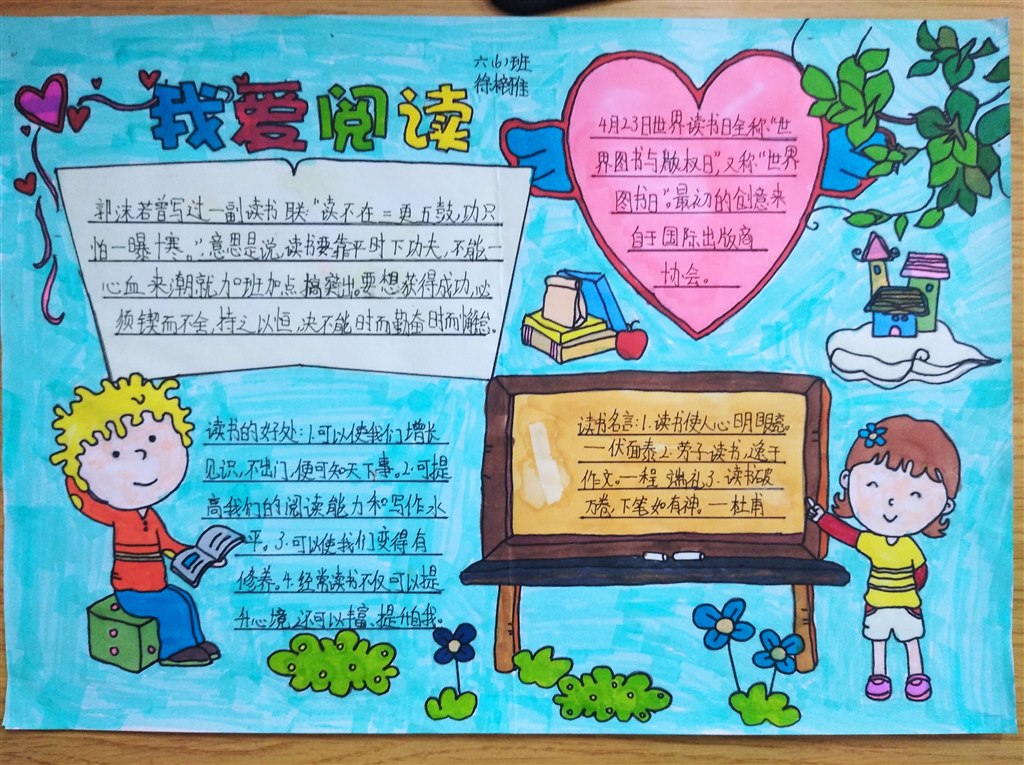 我爱阅读
六(6)班
徐梓雅
郭沫若曾写过一副读书联:“读不在三更五鼓,功只
怕一曝十寒。”,意思是说,读书要靠平时下功夫,不能一
心血来潮就加班加点搞突出。要想获得成功,必
须锲而不舍,持之以恒,决不能时而勤奋时而懈怠。
4月23日世界读书日全称“世
界图书与版权日”,又称“世界
图书日”。最初的创意来
自于国际出版商
协会。
读书的好处:1.可以使我们增长
见识,不出门,便可知天下事。2.可提
高我们的阅读能力和写作水
平。3.可以使我们变得有
修养。4.经常读书不仅可以提
升心境,还可以丰富、提升自我。
读书名言:1.读书使人心明眼亮。
—伏面泰2.劳于读书,逸于
作文。—程端礼3.读书破
万卷,下笔如有神。—杜甫